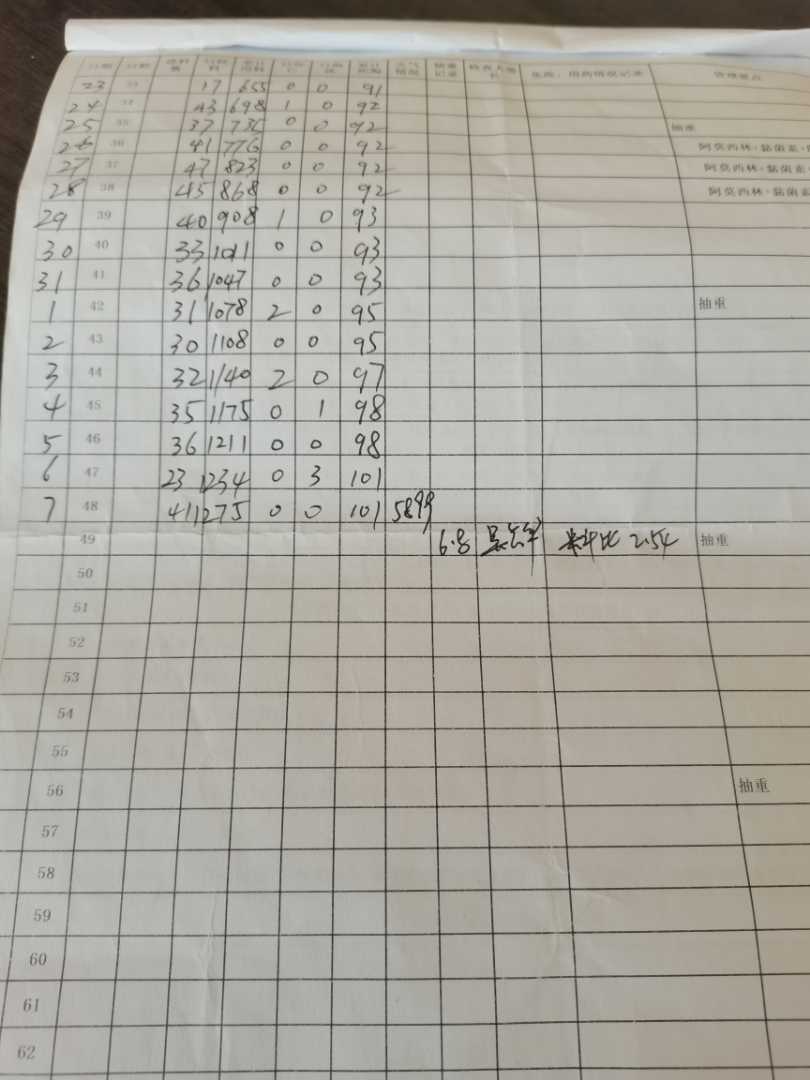 日期 日龄
23 17 655 0 0 91
24 43 698 1 0 92
25 35 37 0 0 92 抽重
26 36 41 776 0 0 92 阿莫西林·黏菌素·
27 37 47 823 0 0 92 阿莫西林·黏菌素·
28 38 45 868 0 0 92 阿莫西林·黏菌素
29 39 40 908 1 0 93
30 40 33 1011 0 0 93
31 41 36 1047 0 0 93
1 42 31 1078 2 0 95 抽重
2 43 30 1108 0 0 95
3 44 32 1140 2 0 97
4 45 35 1175 0 1 98
5 46 36 1211 0 0 98
6 47 23 1234 0 3 101
7 48 41 1275 0 0 101 5899
49 6.8 料比 2.54 抽重
50
51
52
53
54
55
56 抽重
57
58
59
60
61
62